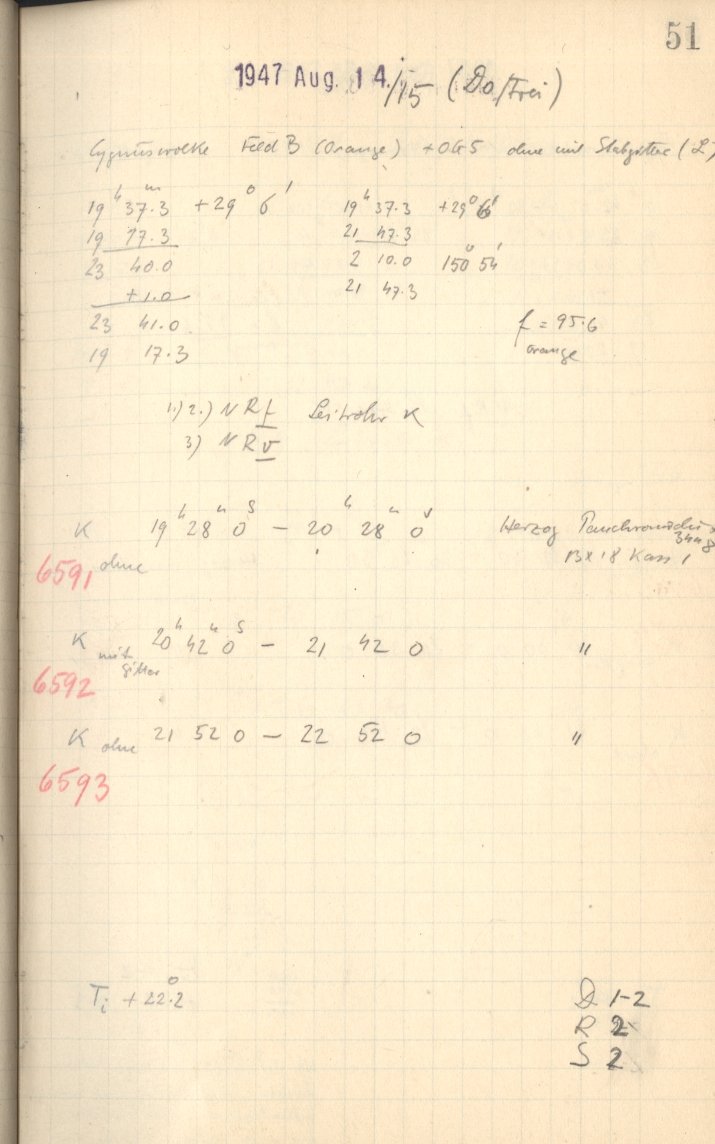 51
1947 Aug. 14./15 (Do/Frei)
Cygnuswolke Feld B (Orange) + OG5 ohne mit Stabgitter (L)
19ʰ 37ᵐ.3 +29° 6'
19 17.3
23 40.0
+1.0
23 41.0
19 17.3
19ʰ 37.3 +29° 6'
21 47.3
2 10.0 150° 54'
21 47.3
f = 95.6
orange
1.) 2.) NRf Leitrohr K
3) NRv
K 19ʰ 28ᵐ 0ˢ – 20ʰ 28ᵐ 0ˢ Herzog
6591 ohne 13x18 Kass 1
K mit Gitter 20ʰ 42ᵐ 0ˢ – 21 42 0 "
6592
K ohne 21 52 0 – 22 52 0 "
6593
Ti +22°.2
D 1-2
R 2
S 2